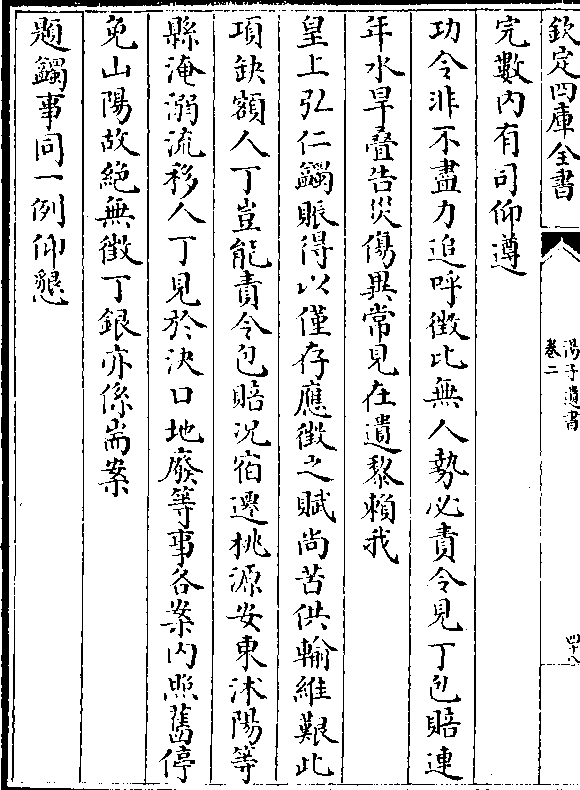 欽定四庫全書
湯子遺書
卷二
四十八
完數內有司仰遵
功令非不盡力追呼徵比無人勢必責令見丁包賠連
年水旱疊告災傷異常見在遺黎賴我
皇上弘仁蠲賑得以僅存應徵之賦尚苦供輸維艱此
項缺額人丁豈能責令包賠況宿遷桃源安東沭陽等
縣淹溺流移人丁見於決口地廢等事各案內照舊停
免山陽故絕無徵丁銀亦係耑案
題蠲事同一例仰懇